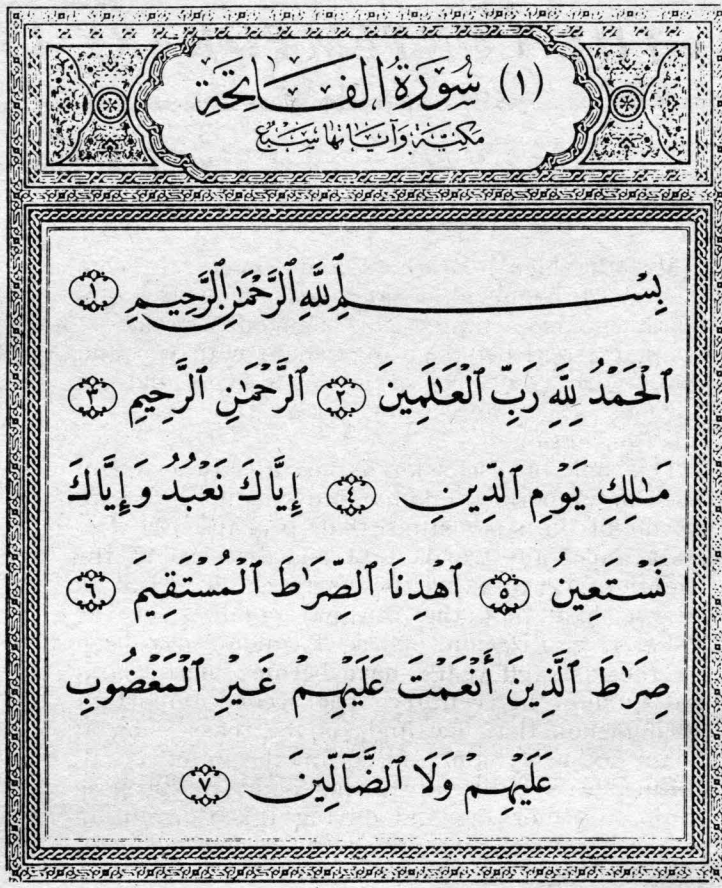 (١) سُورَةُ الفَاتِحَةِ
مَكيّة وَآيَاتهَا سَبْعٌ
بِسْمِ ٱللَّهِ ٱلرَّحْمَٰنِ ٱلرَّحِيمِ ١
ٱلْحَمْدُ لِلَّهِ رَبِّ ٱلْعَٰلَمِينَ ٢ ٱلرَّحْمَٰنِ ٱلرَّحِيمِ ٣
مَٰلِكِ يَوْمِ ٱلدِّينِ ٤ إِيَّاكَ نَعْبُدُ وَإِيَّاكَ
نَسْتَعِينُ ٥ ٱهْدِنَا ٱلصِّرَٰطَ ٱلْمُسْتَقِيمَ ٦
صِرَٰطَ ٱلَّذِينَ أَنْعَمْتَ عَلَيْهِمْ غَيْرِ ٱلْمَغْضُوبِ
عَلَيْهِمْ وَلَا ٱلضَّآلِّينَ ٧